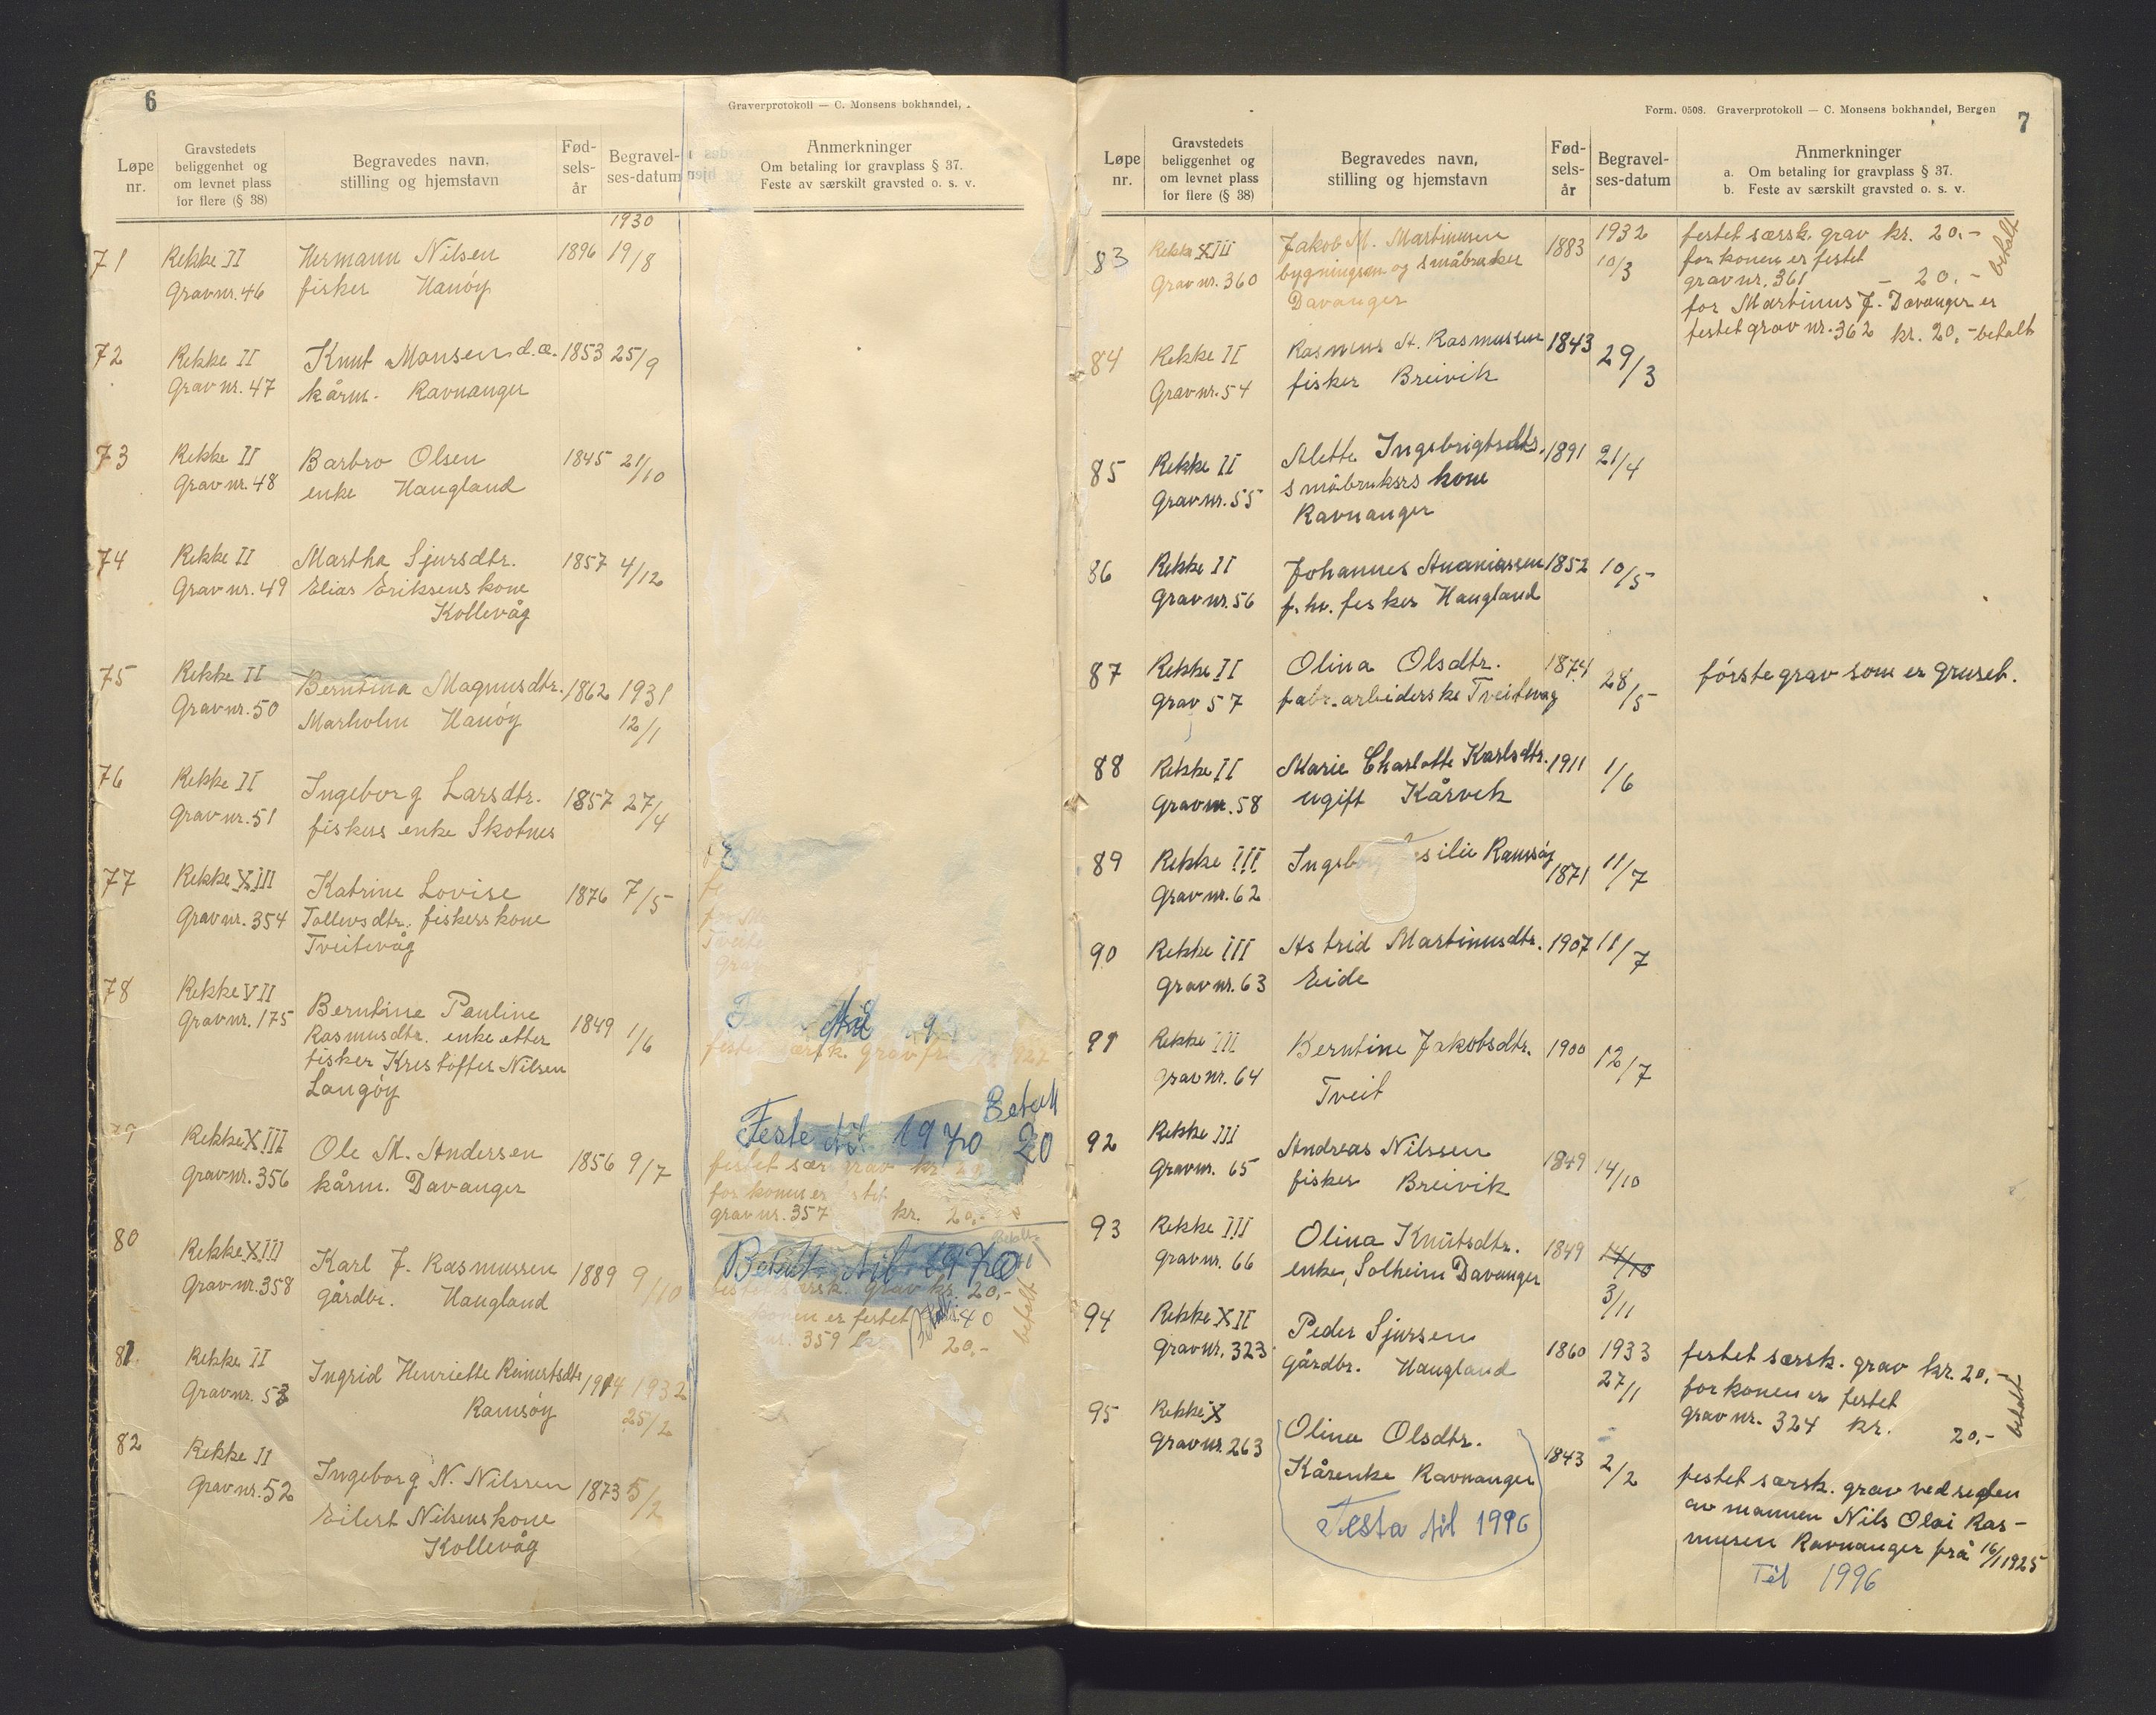 6
Graverprotokoll — C. Monsens bokhandel,
Løpe nr.
Gravstedets beliggenhet og om levnet plass for flere (§ 38)
Begravedes navn, stilling og hjemstavn
Fød-sels-år
Begravel-ses-datum
Anmerkninger
Om betaling for gravplass § 37.
Feste av særskilt gravsted o. s. v.
1930
71 Rekke II Hermann Nilsen 1896 19/8
Grav nr. 46 fisker Hanøy
72 Rekke II Knut Monsen d.æ. 1853 25/9
Grav nr. 47 kårm. Ravnanger
73 Rekke II Barbro Olsen 1845 21/10
Grav nr. 48 enke Haugland
74 Rekke II Martha Sjursdtr. 1857 4/12
Grav nr. 49 Elias Eriksens kone
Kollevåg
75 Rekke II Berntina Magnusdtr. 1862 1931
Grav nr. 50 Marholm Hanøy 12/1
76 Rekke II Ingeborg Larsdtr. 1857 27/4
Grav nr. 51 fiskers enke Skotnes
77 Rekke XIII Katrine Lovise 1876 7/5
Grav nr. 354 Tollevsdtr. fiskers kone
Tveitevåg
78 Rekke VII Berntine Pauline 1849 1/6
Grav nr. 175 Rasmusdtr. enke etter
fisker Kristoffer Nilsen
Langøy
Betalt
Feste til 1970 20
79 Rekke XIII Ole M. Andersen 1856 9/7
Grav nr. 356 kårm. Davanger
festet grav kr.
for konen er festet
grav nr. 357 kr. 20,-
Betalt til 1970
80 Rekke XIII Karl J. Rasmussen 1889 9/10
Grav nr. 358 gårdbr. Haugland
særsk. grav kr. 20,-
konen er festet Betalt 40
nr. 359 kr. 20,-
betalt
81. Rekke II Ingrid Henriette Reinertsdtr 1914 1932
Grav nr. 53 Ramsøy 25/2
82 Rekke II Ingeborg N. Nilssen 1873 5/2
Grav nr. 52 Eilert Nilsens kone
Kollevåg
Form. 0508. Graverprotokoll — C. Monsens bokhandel, Bergen
7
Løpe nr.
Gravstedets beliggenhet og om levnet plass for flere (§ 38)
Begravedes navn, stilling og hjemstavn
Fød-sels-år
Begravel-ses-datum
Anmerkninger
a. Om betaling for gravplass § 37.
b. Feste av særskilt gravsted o. s. v.
83 Rekke XIII Jakob M. Martinusen 1883 1932 festet særsk. grav kr. 20.-
Grav nr. 360 bygningsm og småbruker 10/3 for konen er festet
Davanger grav nr. 361 - 20.- betalt
for Martinus J. Davanger er
festet grav nr. 362 kr. 20,- betalt
84 Rekke II Rasmus A. Rasmussen 1843 29/3
Grav nr. 54 fisker Breivik
85 Rekke II Alette Ingebrigtsdtr. 1891 21/4
Grav nr. 55 småbrukers kone
Ravnanger
86 Rekke II Johannes Ananiassen 1852 10/5
Grav nr. 56 f. hv. fisker Haugland
87 Rekke II Olina Olsdtr. 1874 28/5 første grav som er gruset.
Grav 57 fabr. arbeiderske Tveitevåg
88 Rekke II Marie Charlotte Karlsdtr. 1911 1/6
Grav nr. 58 ugift Kårvik
89 Rekke III Ramsøy 1871 11/7
Grav nr. 62
90 Rekke III Astrid Martinusdtr. 1907 11/7
Grav nr. 63 Eide
91 Rekke III Berntine Jakobsdtr. 1900 12/7
Grav nr. 64 Tveit
92 Rekke III Andreas Nilssen 1849 14/10
Grav nr. 65 fisker Breivik
93 Rekke III Olina Knutsdtr. 1849 14/10
Grav nr. 66 enke, Solheim Davanger 3/11
94 Rekke XII Peder Sjursen 1860 1933 festet særsk. grav kr. 20,-
Grav nr. 323 gårdbr. Haugland 27/1 for konen er festet
grav nr. 324 kr. 20,- betalt
95 Rekke X Olina Olsdtr. 1843 2/2 festet særsk. grav ved siden
Grav nr. 263 Kårenke Ravnanger av mannen Nils Olai Ras-
Festa til 1996 musen Ravnanger frå 16/1 1925
Til 1996